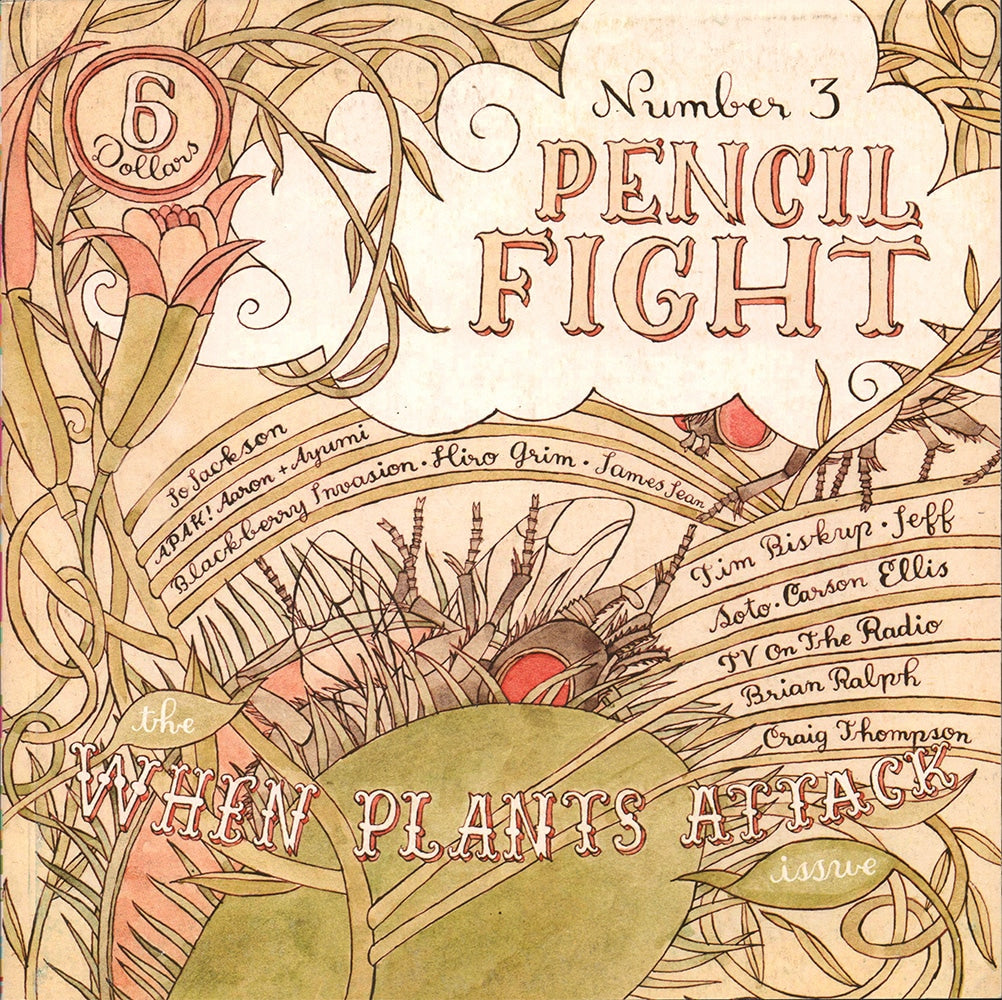 6
Dollars
Number 3
PENCIL
FIGHT
Jo Jackson
APAK! Aaron + Ayumi
Blackberry Invasion · Hiro Grim · James Jean
Tim Biskup · Jeff
Soto · Carson Ellis
TV On The Radio
Brian Ralph
Craig Thompson
the
WHEN PLANTS ATTACK
issue